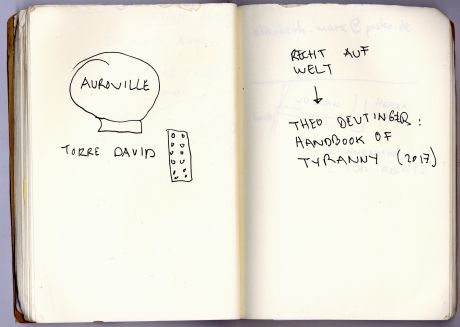 AUROVILLE
TORRE DAVID
RECHT AUF
WELT
THEO DEUTINGER:
HANDBOOK OF
TYRANNY (2017)